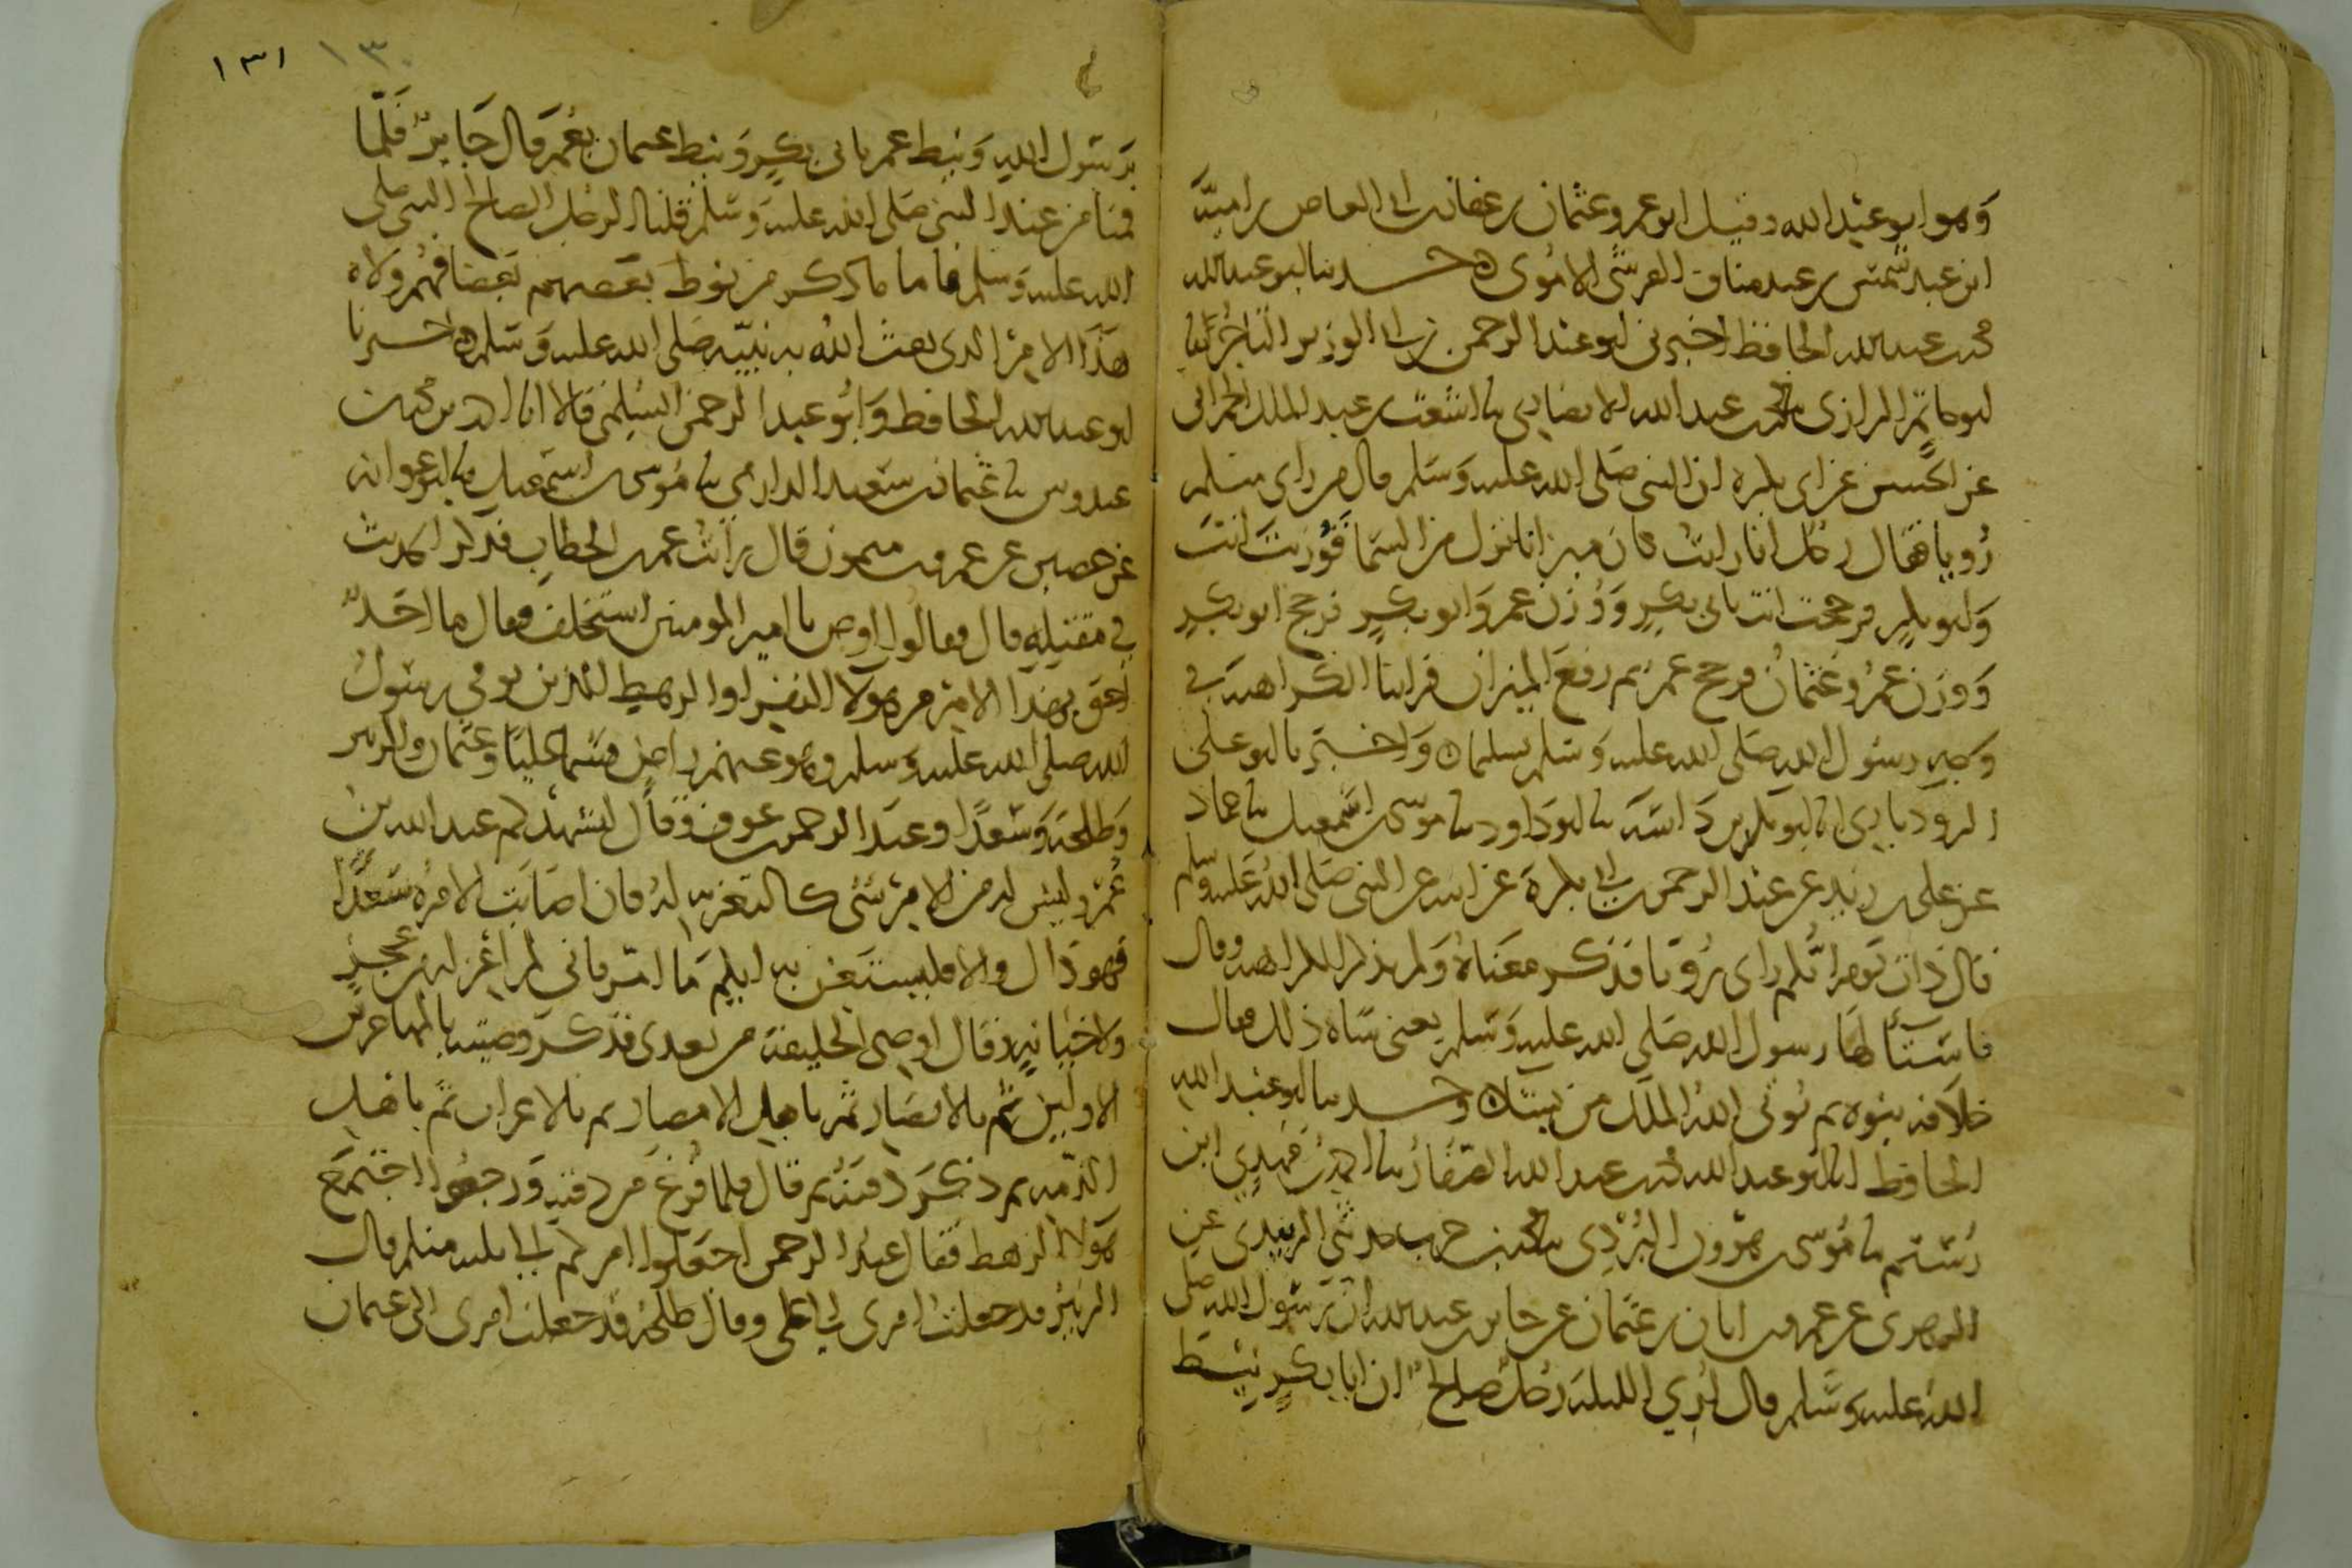 وهو ابو عبد الله وقيل ابو عمرو عثمان بن عفان بن ابى العاص بن امية
ابن عبد شمس بن عبد مناف القرشى الاموى ه حدثنا ابو عبد الله
محمد بن عبد الله الحافظ اخبرنى ابو عبد الرحمن بن ابى الوزير التاجر انا
ابو حاتم الرازى نا محمد بن عبد الله الانصارى نا اشعث بن عبد الملك الحمرانى
عن الحسن عن ابى بكرة ان النبى صلى الله عليه وسلم قال من راى منكم
رويا فقال رجل انا رايت كان ميزانا نزل من السما فوزنت انت
وابو بكر فرجحت انت بابى بكر ووزن عمر وابو بكر فرجح ابو بكر
ووزن عمر وعثمان فرجح عمر ثم رفع الميزان فراينا الكراهية فى
وجه رسول الله صلى الله عليه وسلم واخبرنا ابو على
الروذبارى انا ابو بكر بن داسة نا ابو داود نا موسى بن اسمعيل نا حماد
عن على بن زيد عن عبد الرحمن بن ابى بكرة عن ابيه عن النبى صلى الله عليه وسلم
قال ذات يوم ايكم راى رويا فذكر معناه ولم يذكر الكراهية وقال
فاستآ لها رسول الله صلى الله عليه وسلم يعنى ساه ذلك فقال
خلافة نبوة ثم يوتى الله الملك من يشا ه وحدثنا ابو عبد الله
الحافظ انا ابو عبد الله محمد بن عبد الله الصفار نا احمد بن مهدى ابن
رستم نا موسى بن هرون البردى نا محمد بن حرب حدثنى الزبيدى عن
الزهرى عن عمرو بن ابان بن عثمان عن جابر بن عبد الله ان رسول الله صلى
الله عليه وسلم قال ارى الليلة رجل صالح ان ابا بكر نيط
١٣٠ ١٣١
برسول الله ونيط عمر بابى بكر ونيط عثمان بعمر قال جابر فلما
قمنا من عند النبى صلى الله عليه وسلم قلنا الرجل الصالح النبى صلى
الله عليه وسلم فاما ما ذكر من نوط بعضهم بعضا فهم ولاه
هذا الامر الذى بعث الله به نبيه صلى الله عليه وسلم ه واخبرنا
ابو عبد الله الحافظ وابو عبد الرحمن السلمى قالا انا ابو الحسن محمد بن
عبدوس نا عثمان بن سعيد الدارمى نا موسى بن اسمعيل نا ابو عوانه
عن حصين عن عمرو بن ميمون قال رايت عمر بن الخطاب فذكر الحديث
فى مقتله قال فقالوا اوص يا امير المومنين استخلف فقال ما احد
احق بهذا الامر من هولآ النفر او الرهط الذين توفى رسول
الله صلى الله عليه وسلم وهو عنهم راض فسما عليا وعثمان والزبير
وطلحة وسعدا وعبد الرحمن بن عوف وقال ليشهدكم عبد الله بن
عمر وليس له من الامر شى كالتعزيه له فان اصابت الامره سعدا
فهو ذاك والا فليستعن به ايكم ما امر فانى لم اعزله من عجز
ولا خيانه وقال اوصى الخليفة من بعدى فذكر وصيته بالمهاجرين
الاولين ثم بالانصار ثم باهل الامصار ثم بالاعراب ثم باهل
الذمه ثم ذكر دفنه ثم قال فلما فرغ من دفنه ورجعوا اجتمع
هولآ الرهط فقال عبد الرحمن اجعلوا امركم الى ثلثه منكم فقال
الزبير قد جعلت امرى الى على وقال طلحة قد جعلت امرى الى عثمان